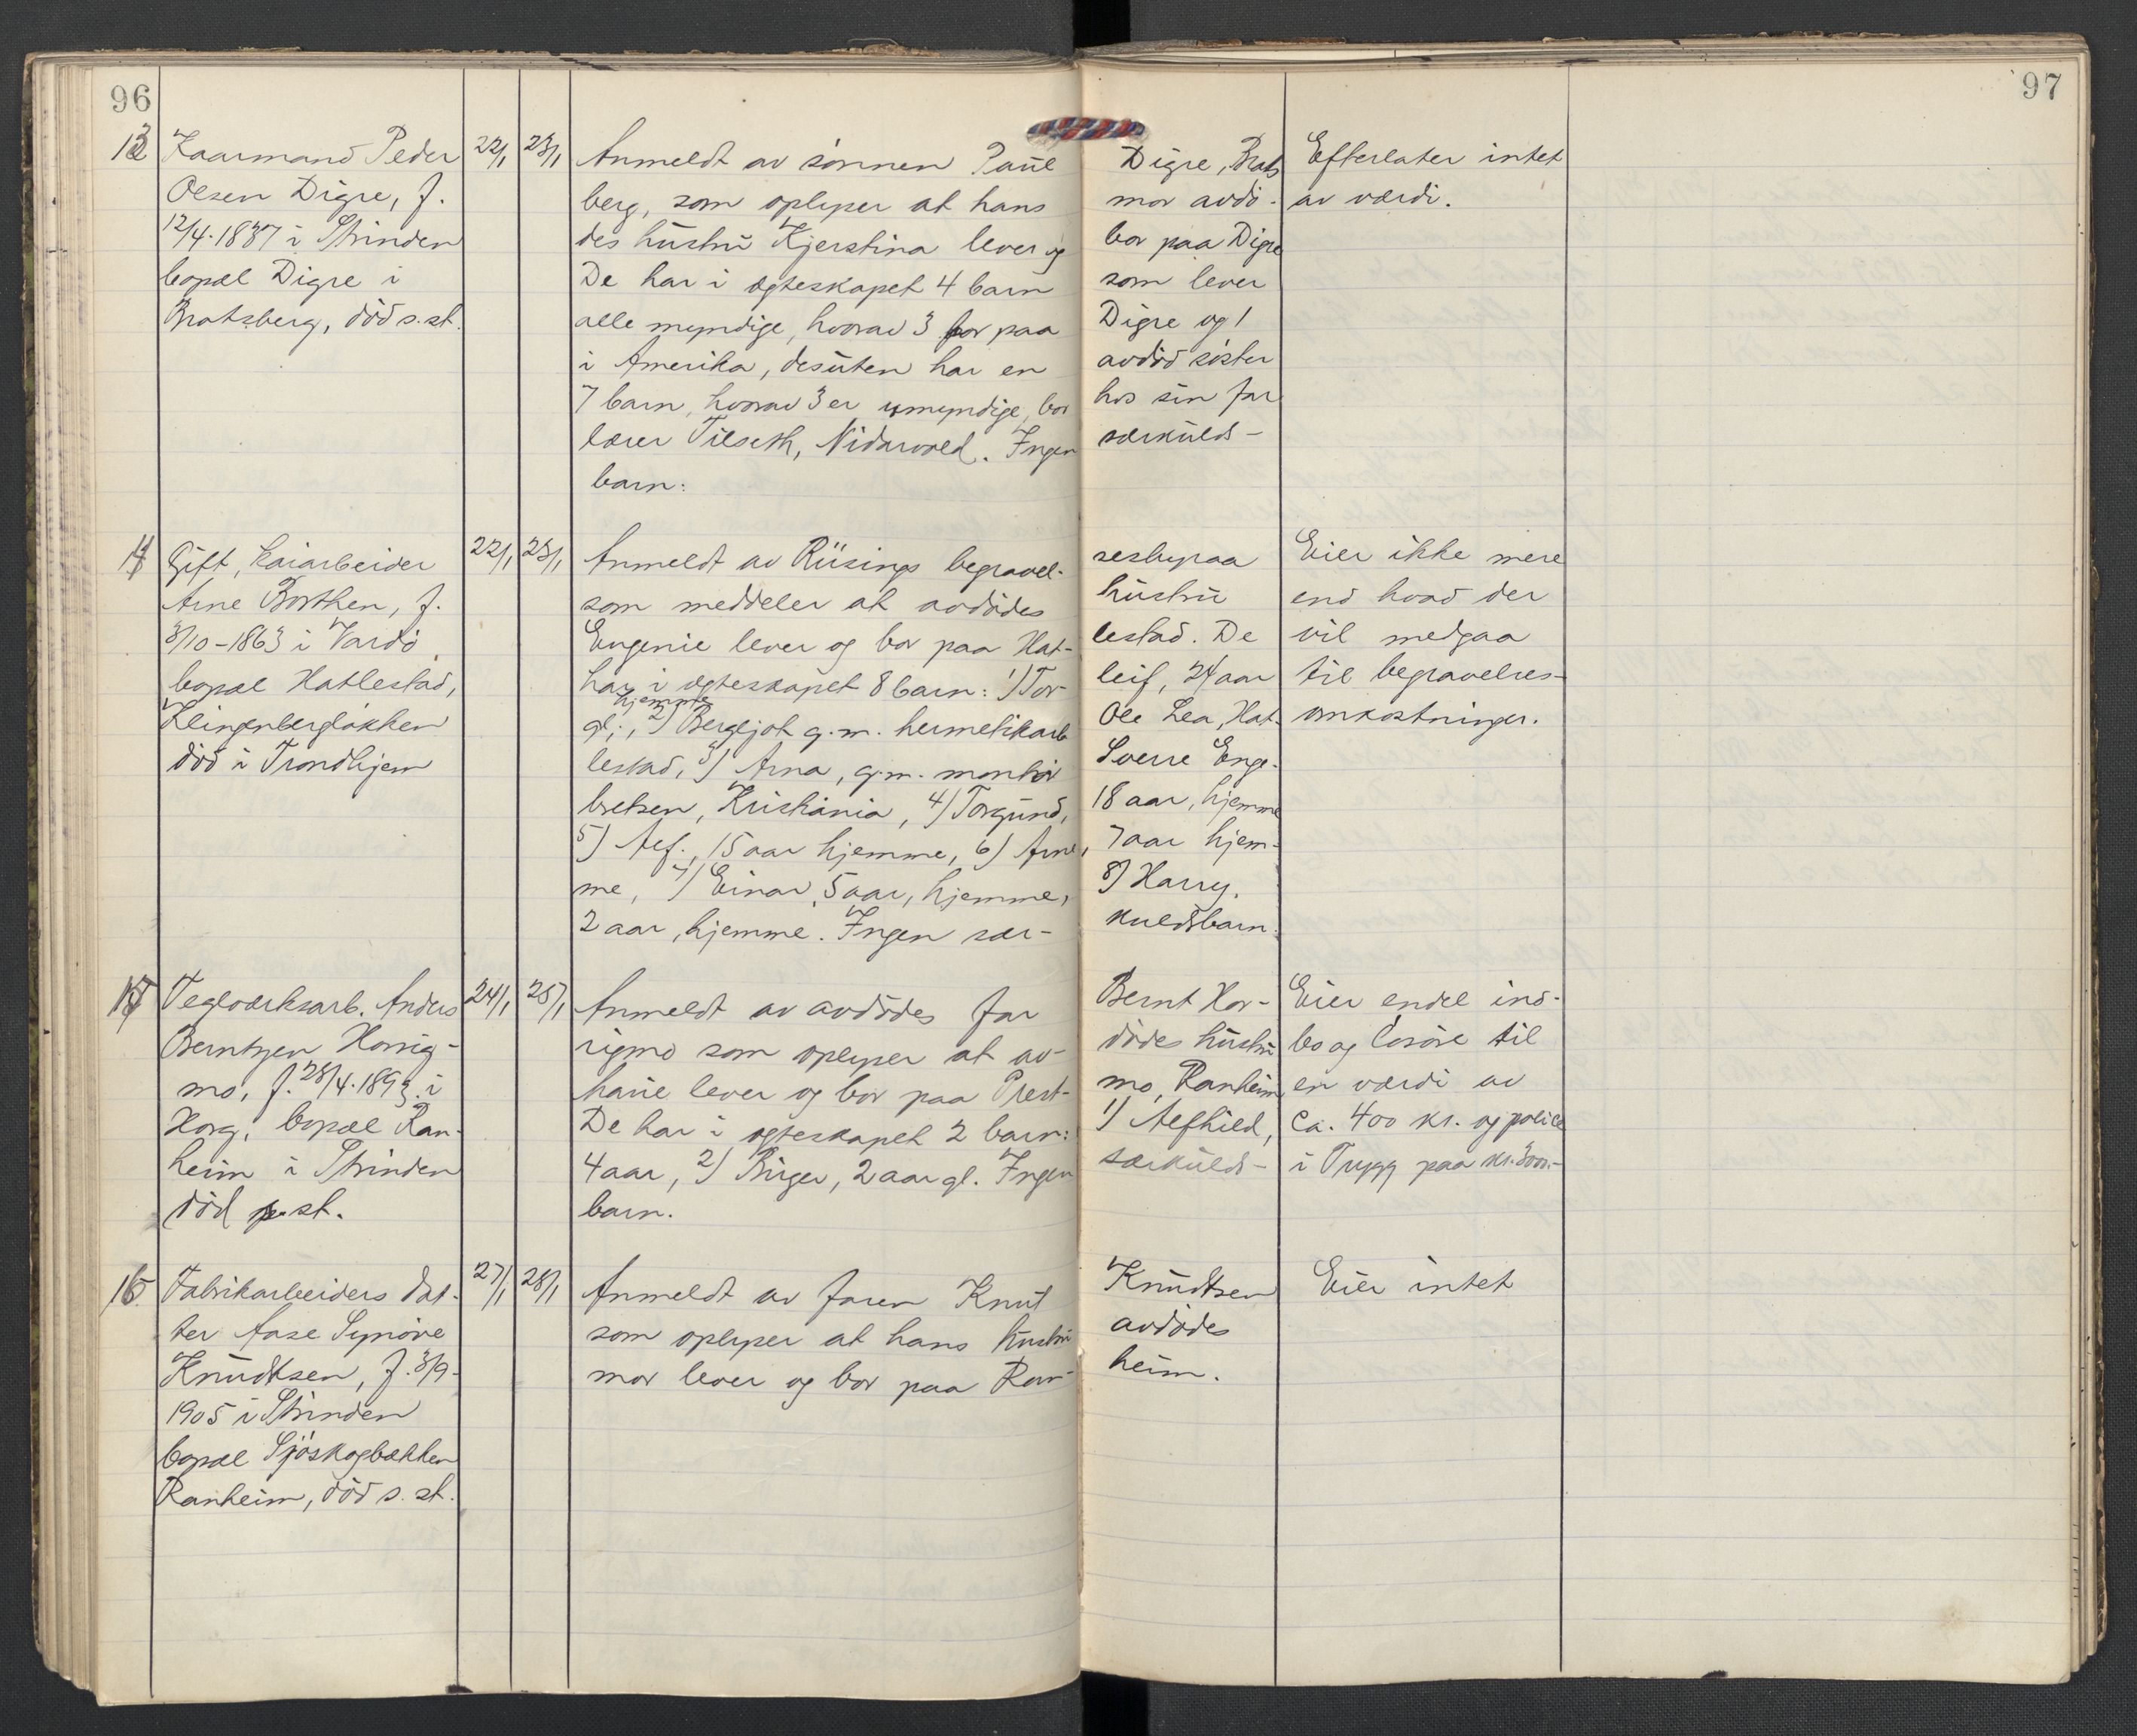 96
97
13
Kaarmand Peder
Olsen Digre, f.
12/4.1837 i Strinden
bopæl Digre i
Bratsberg, död s. st.
22/1
23/1
Anmeldt av sönnen Paul Digre, Brats
berg, som oplyser at hans mor avdö-
des hustru Kjerstina lever og bor paa Digre
De har i ægteskapet 4 barn som lever
alle myndige, hvorav 3 bor paa Digre og 1
i Amerika, desuten har en avdöd söster
7 barn, hvorav 3 er umyndige, bor hos sin far
lærer Tilseth, Nidarvold. Ingen særkulds-
barn.
Efterlater intet
av værdi.
14
Gift, kaiarbeider
Arne Borthen, f.
3/10-1863 i Vardö,
bopæl Hatlestad,
Klingenbergløkken
död i Trondhjem
22/1
23/1
Anmeldt av Riisings begravel- sesbyraa
som meddeler at avdödes hustru
Eugenie lever og bor paa Hat- lestad. De
har i ægteskapet 8 barn: 1) Tor- leif, 24 aar
hjemme
gl., 2) Bergljot g.m. hermetikarb Ole Lea, Hat-
lestad, 3) Arna, g.m. montör Sverre Enge-
bretsen, Kristiania, 4) Torgund, 18 aar, hjemme
5) Alf, 15 aar hjemme, 6) Arne, 7 aar hjem-
me, 7) Einar, 5 aar, hjemme, 8) Harry,
2 aar, hjemme. Ingen sær- kuldsbarn.
Eier ikke mere
end hvad der
vil medgaa
til begravelses-
omkostninger.
15
Teglverksarb. Anders
Berntzen Horrig-
mo, f. 28/4.1893 i
Horg, bopæl Ran-
heim i Strinden
död s. st.
24/1
25/1
Anmeldt av avdödes far Bernt Hor-
rigmo som oplyser at av- dödes hustru
lever og bor paa Prest- mo, Ranheim
De har i ægteskapet 2 barn: 1) Alfhild,
4 aar, 2) Birger, 2 aar gl. Ingen særkulds-
barn.
Eier endel ind-
bo og lösöre til
en værdi av
ca. 400 kr. og police
i Trygg paa kr. 3000.-
16
Fabrikarbeiders dat-
ter Aase Synöve
Knudtsen, f. 3/9-
1905 i Strinden
bopæl Sjöskogbakken
Ranheim, död s. st.
27/1
28/1
Anmeldt av faren Knut Knudtsen
som oplyser at hans hustru avdödes
mor lever og bor paa Ran- heim.
Eier intet